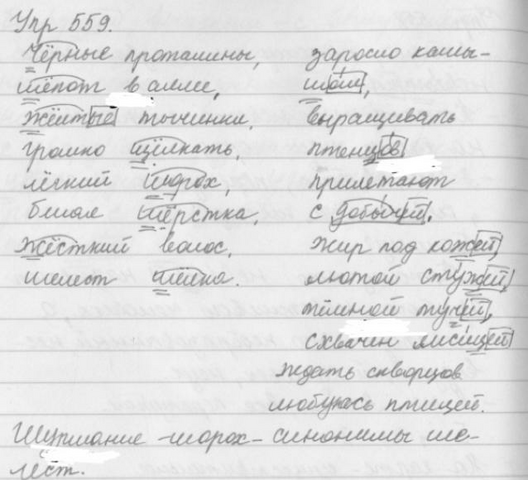 Упр 559.
Чёрные проталины,
шёпот в аллее,
Жёлтые тычинки,
громко щёлкать,
лёгкий шорох,
белая шёрстка,
Жёсткий волос,
шелест шёлка.
заросло камы-
шом,
выращивать
птенцов
прилетают
с добычей,
жир под кожей,
лютой стужей,
тёмной тучей,
схвачен лисицей
ждать скворцов
любуясь птицей.
-шорох- синонимы ше-
лест.